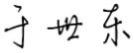 于世东